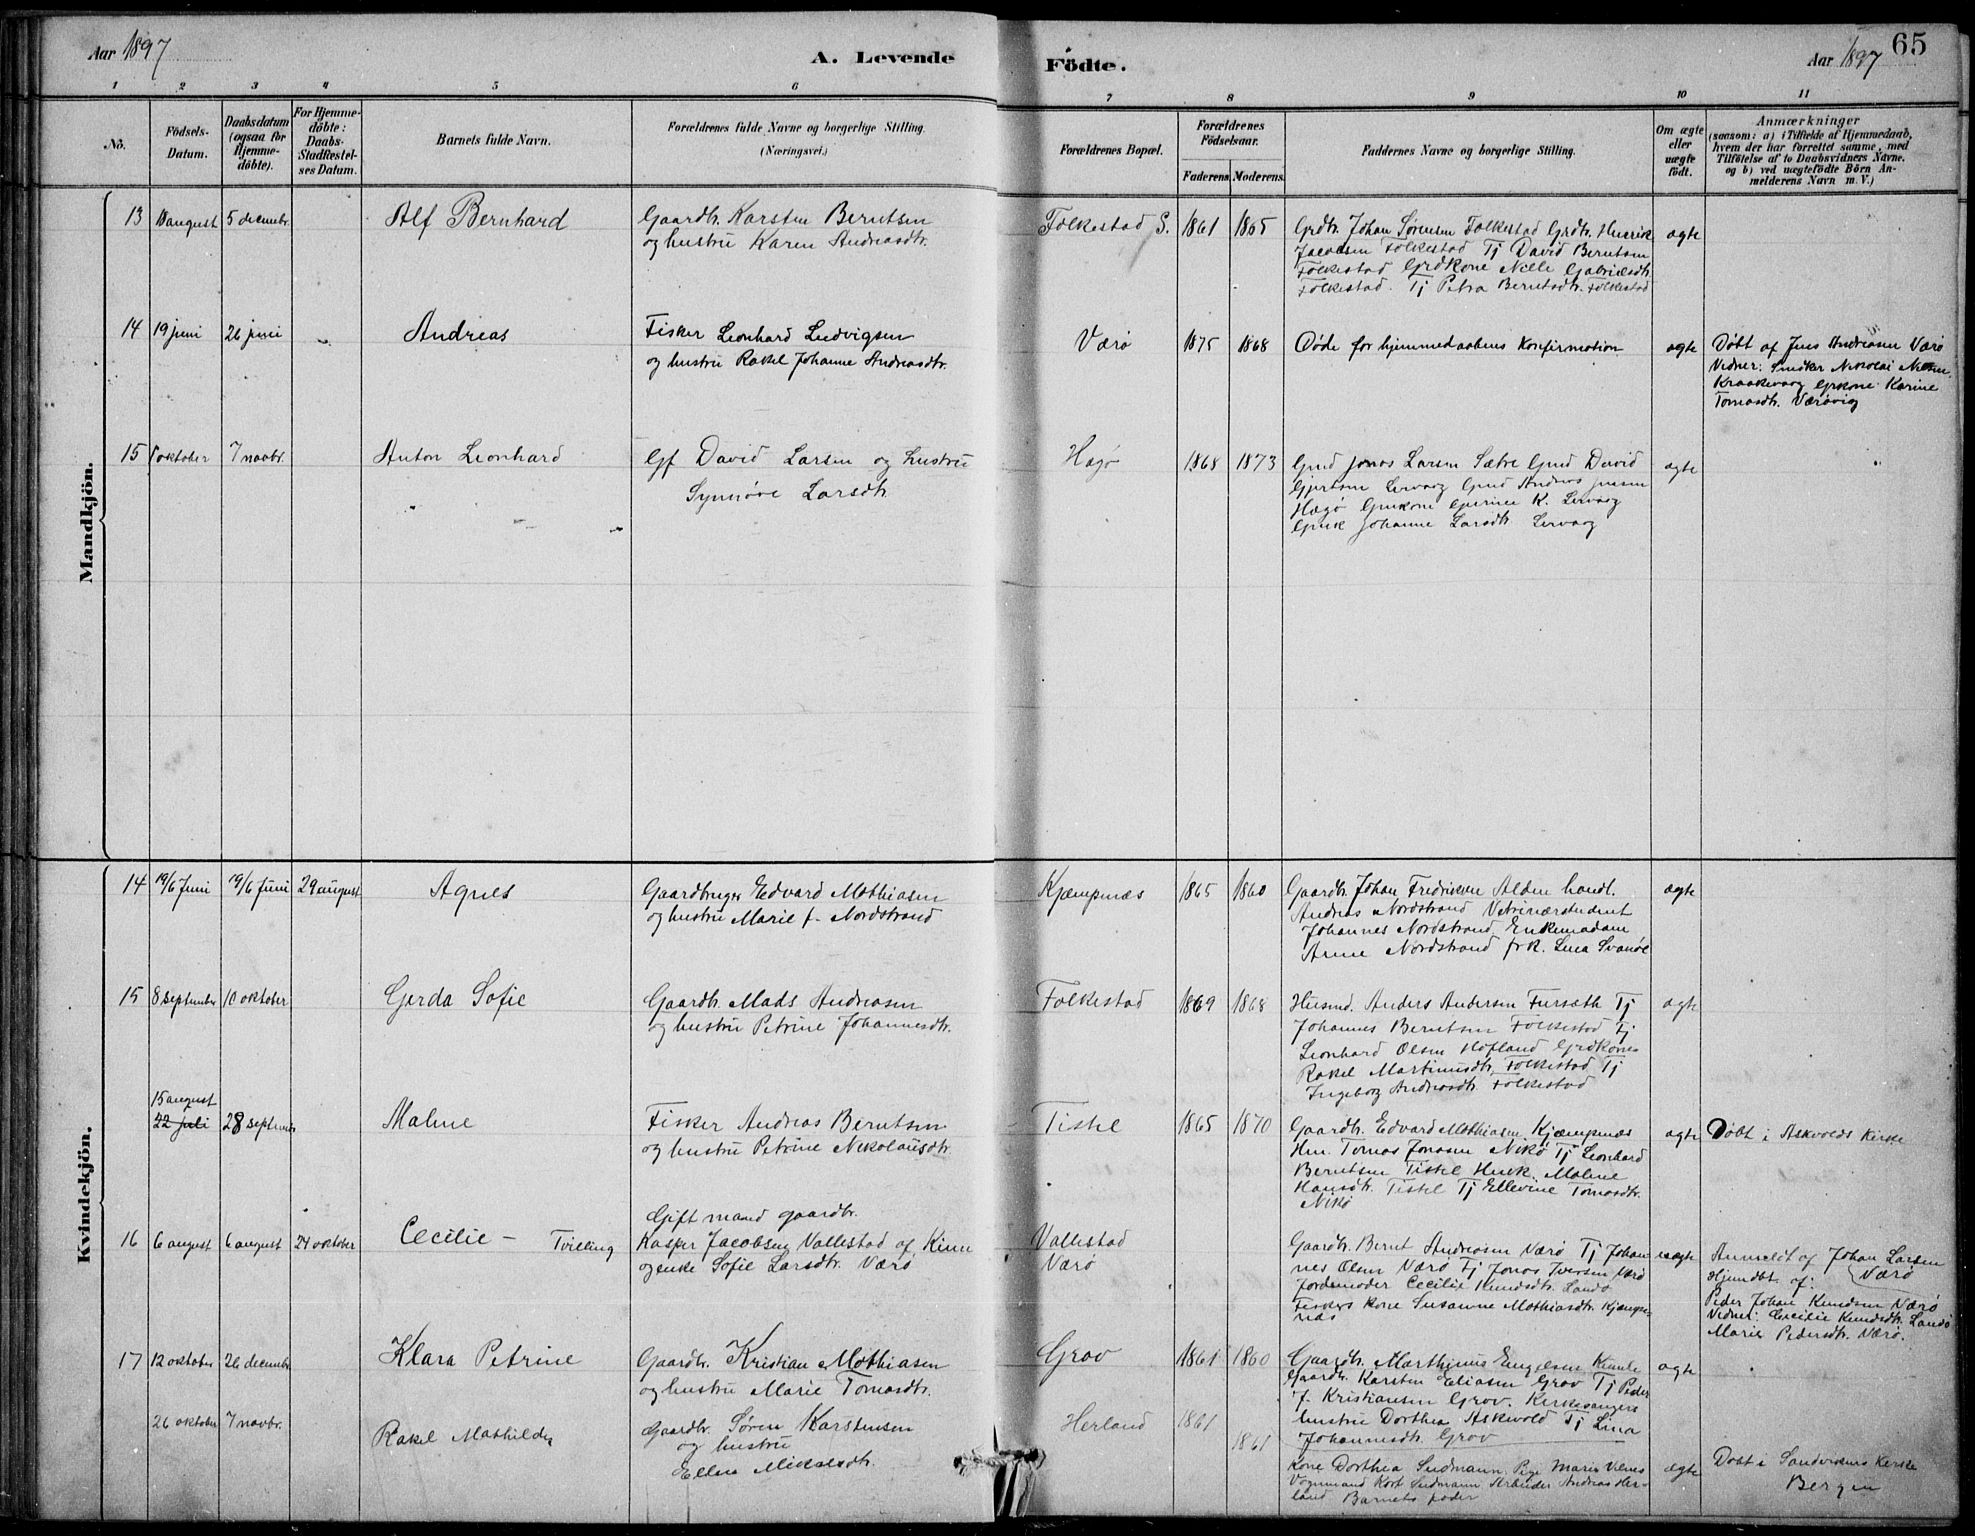 Aar 1897
A. Levende
Födte.
Aar 1897
65
1 2 3 4 5 6 7 8 9 10 11
No.
Födsels-
Datum.
Daabsdatum
(ogsaa for
Hjemme-
döbte).
For Hjemme-
döbte:
Daabs-
Stadfæstel-
ses Datum.
Barnets fulde Navn.
Forældrenes fulde Navne og borgerlige Stilling.
(Næringsvei.)
Forældrenes Bopæl.
Forældrenes
Födselsaar.
Faderens. Moderens.
Faddernes Navne og borgerlige Stilling.
Om ægte
eller
uægte
födt.
Anmærkninger
(saasom: a) i Tilfælde af Hjemmedaab,
hvem der har forrettet samme, med
Tilföielse af to Daabsvidners Navne.
og b) ved uægtefödte Börn An-
melderens Navn m. V.)
Mandkjön.
13 18 august 5 decembr. Alf Bernhard
Gaardb. Karsten Berntsen
og hustru Karen Andreasdtr.
Folkestad S. 1861 1865
Grdbr. Johan Sørensen Folkestad Grdbr. Henrik
Jacobsen Folkestad Tj David Berntsen
Folkestad Grdkone Nille Gabrielsdtr.
Folkestad. Tj Petra Berntsdtr. Folkestad
ægte
14 19 juni 26 juni Andreas
Fisker Leonhard Ludvigsen
og hustru Rakel Johanne Andreasdtr.
Værø 1875 1868
Døde før hjemmedaabens Konfirmation
ægte
Døbt af Jens Andreasen Værø
Vidner: Snedker Nikolai Nilsen,
Kraakevaag Grkone Karine
Tomasdtr. Værøvig
15 1 oktober 7 novbr. Anton Leonhard
Gf David Larsen og hustru
Synnøve Larsdtr
Hægø 1868 1873
Gmd Jonas Larsen Sætre Gmd David
Gjertsen Lervaag Gmd Andreas Jensen
Hægø Gmkone Gjerine K. Lervaag
Gmk Johanne Larsdtr. Lervaag
ægte
Kvindekjön.
14 19/6 Juni 19/6 Juni 29 august Agnes
Gaardbruger Edvard Mathiasen
og hustru Marie f. Nordstrand
Kjempenæs 1865 1860
Gaardb. Johan Fredriksen Alden handl.
Andreas Nordstrand Vetrinærstudent
Johannes Nordstrand, Enkemadam
Anne Nordstrand frk. Lina Svanøe
ægte
15 8 september 10 oktober Gerda Sofie
Gaardb. Mads Andreasen
og hustru Petrine Johannesdtr.
Folkestad 1869 1868
Husmd. Anders Andersen Fursæth Tj
Johannes Berntsen Folkestad Tj
Leonhard Olsen Høfland Grdkone
Rakel Martinusdtr. Folkestad Tj
Ingeborg Andreasdtr. Folkestad
ægte
15 august
22 juli 28 septembr Malene
Fisker Andreas Berntsen
og hustru Petrine Nikolausdtr.
Tistel 1865 1870
Gaardb. Edvard Mathiasen Kjempenæs
Hm. Tomas Jonasen Nikø Tj Leonhard
Berntsen Tistel Husk. Malene
Hansdtr. Tistel Tj Ellevine Tomasdtr.
Nikø
ægte
Døbt i Askvolds Kirke
16 6 august 6 august 24 oktober Cecilie – Tvilling
Gift mand gaardbr.
Kasper Jacobsen Vallestad af Kinn
og enke Sofie Larsdtr. Værø
Vallestad
Værø
Gaardb. Bernt Andreasen Værø Tj Johan-
nes Olsen Værø Tj Jonas Iversen Værø
Jordemoder Cecilie Knudsdtr. Landø
Fiskers kone Susanne Mathiasdtr. Kjempe-
næs
uægte
Anmeldt af Johan Larsen
Værø
Hjemdbt. af:
Peder Johan Knudsen Værø
Vidner: Cecilie Knudsdtr. Landø
Marie Pedersdtr. Værø.
17 12 oktober 26 decembr Klara Petrine
Gaardbr. Kristian Mathiasen
og hustru Marie Tomasdtr.
Grov 1861 1860
Gaardb. Marthinus Engelsen Kumle
Gaardb. Karsten Eliasen Grov Tj Peder
J. Kristiansen Grov. Kirkesangers
hustru Dorthea Askvold Tj Lina
Johannesdtr. Grov
ægte
26 oktober 7 novbr. Rakel Mathilde
Gaardbr. Søren Karstensen
og hustru
Ellen Mikalsdtr.
Herland 1861 1861
Kone Dorthea Sudmann. Pige Maria Vilnes
Vognmand Kort Sudmann Arbeider Andreas Her-
land Barnets fader
ægte
Døbt i Sandvikens Kirke
Bergen